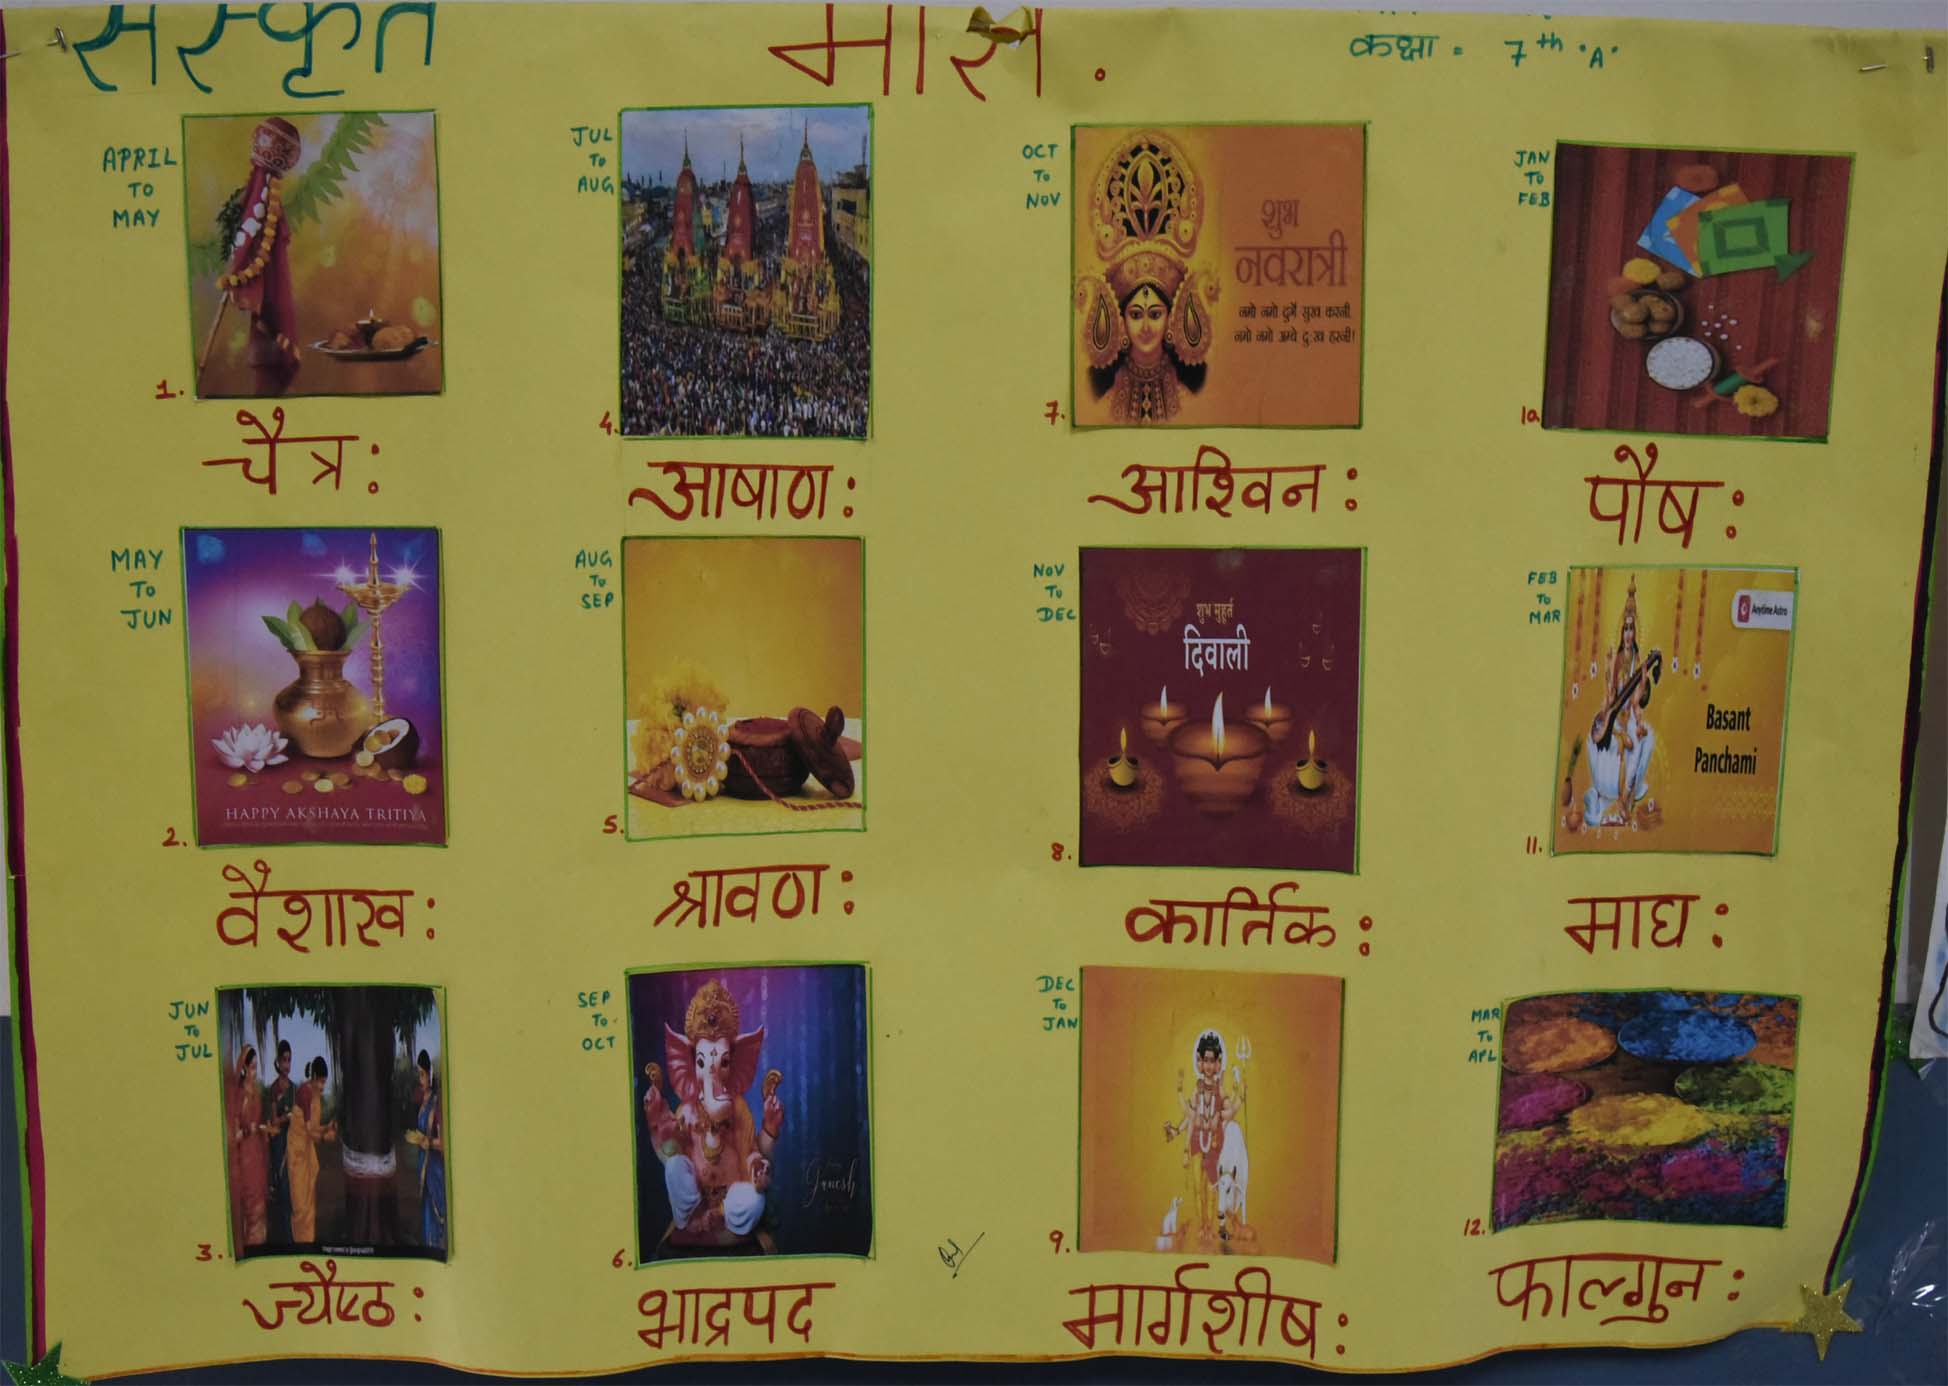 संस्कृत मास .
कक्षा = 7th 'A'
APRIL
TO
MAY
1.
चैत्र:
MAY
TO
JUN
HAPPY AKSHAYA TRITIYA
2.
वैशाख:
JUN
TO
JUL
3.
ज्यैष्ठ:
JUL
TO
AUG
4.
आषाण:
AUG
TO
SEP
5.
श्रावण:
SEP
TO
OCT
Ganesh
6.
भाद्रपद
OCT
TO
NOV
शुभ
नवरात्री
नमो नमो दुर्गे सुख करनी,
नमो नमो अम्बे दु:ख हरनी!
7.
आश्विन:
NOV
TO
DEC
शुभ मुहूर्त
दिवाली
8.
कार्तिक:
DEC
TO
JAN
9.
मार्गशीष:
JAN
TO
FEB
10
पौष:
FEB
TO
MAR
Anytime Astro
Basant
Panchami
11.
माघ:
MAR
TO
APL
12.
फाल्गुन: